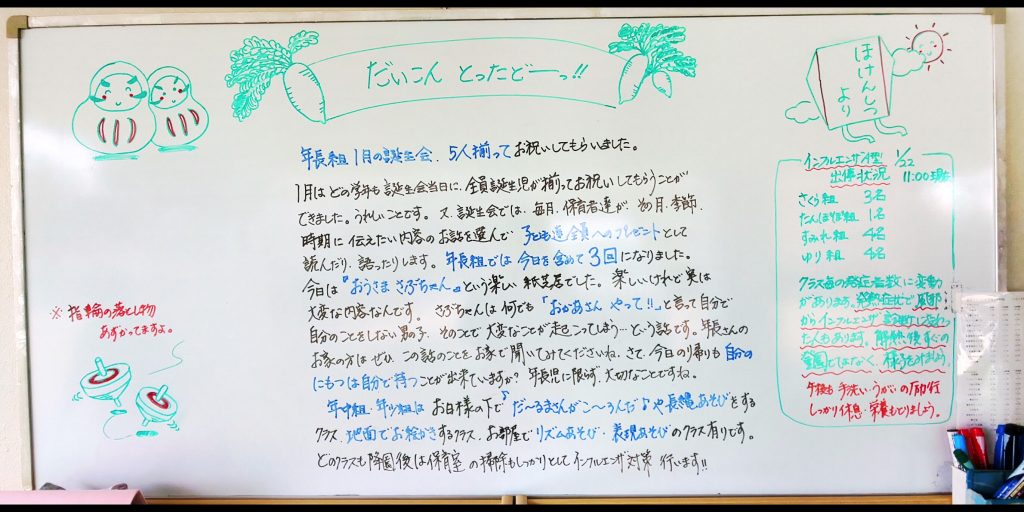 だいこん とったどーっ!!
年長組 1月の誕生会、5人揃ってお祝いしてもらいました。
1月は どの学年も 誕生会当日に、全員誕生児が揃ってお祝いしてもらうことが
できました。うれしいことです。又、誕生会では、毎月、保育者達が その月・季節・
時期に 伝えたい内容の お話を選んで 子ども達全員へのプレゼントとして
読んだり、語ったりします。年長組では 今日を含めて3回になりました。
今日は『おうさま さぶちゃん』という楽しい 紙芝居でした。楽しいけれど 実は
大変な内容なんです。さぶちゃんは 何でも「おかあさん やって!!」と言って 自分で
自分のことをしない男の子。そのことで 大変なことが起こってしまう…という話です。年長さんの
お家の方は ぜひ、この話のことを お家で聞いてみてくださいね。さて、今日の帰りも 自分の
にもつは自分で持つことが出来ていますか? 年長児に限らず、大切なことですね。
年中組・年少組は お日様の下で♪だ〜るまさんがこ〜ろんだ♪や長縄あそびをする
クラス、地面でお絵かきするクラス、お部屋で リズムあそび・表現あそびのクラス有りです。
どのクラスも 降園後は 保育室の掃除もしっかりとして インフルエンザ対策 行います!!
※ 指輪の落とし物
あずかってますよ。
ほけんしつ
より
インフルエンザA型 1/22
出停状況 11:00現在
さくら組 3名
たんぽぽ組 1名
すみれ組 4名
ゆり組 4名
クラス毎の発症者数に変動
があります。発熱症状で、風邪
からインフルエンザ診断に変わっ
た人もあります。解熱後すぐの
登園ではなく、様子をみましょう。
午後も 手洗い・うがいの励行
しっかり休息・栄養もとりましょう。